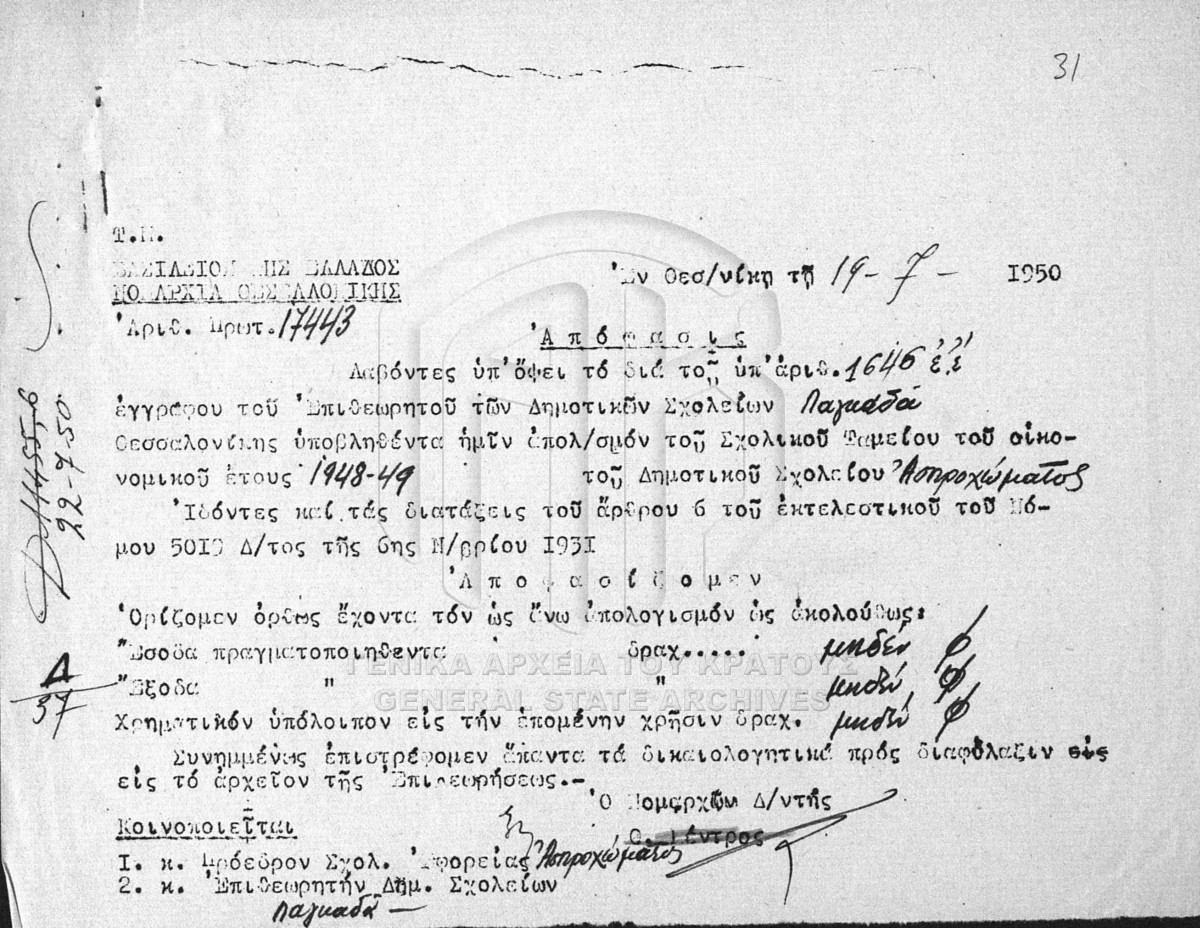 31
Τ.Π.
ΒΑΣΙΛΕΙΟΝ ΤΗΣ ΕΛΛΑΔΟΣ
ΝΟΜΑΡΧΙΑ ΘΕΣΣΑΛΟΝΙΚΗΣ
Ἐν Θεσ/νίκη τῇ 19-7- 1950
Ἀριθ. Πρωτ. 17443
Ἀ π ό φ α σ ι ς
Λαβόντες ὑπ' ὄψει τό διά τοῦ ὑπ' ἀριθ. 1646 ἐ.ἔ
ἐγγράφου τοῦ Ἐπιθεωρητοῦ τῶν Δημοτικῶν Σχολείων Λαγκαδᾶ
Θεσσαλονίκης ὑποβληθέντα ἡμῖν ἀπολ/σμόν τοῦ Σχολικοῦ Ταμείου τοῦ οἰκο-
νομικοῦ ἔτους 1948-49 τοῦ Δημοτικοῦ Σχολείου Ἀσπροχώματος
Ἰδόντες καί τάς διατάξεις τοῦ ἄρθρου 6 τοῦ ἐκτελεστικοῦ τοῦ Νό-
μου 5019 Δ/τος τῆς 6ης Ν/βρίου 1931
Ἀ π ο φ α σ ί ζ ο μ ε ν
Ὁρίζομεν ὀρθῶς ἔχοντα τόν ὡς ἄνω ἀπολογισμόν ὡς ἀκολούθως:
Ἔσοδα πραγματοποιηθεντα δραχ..... μηδέν φ
Ἔξοδα " " μηδέν φ
Χρηματικόν ὑπόλοιπον εἰς τήν ἑπομένην χρῆσιν δραχ. μηδέν φ
Συνημμένως ἐπιστρέφομεν ἅπαντα τά δικαιολογητικά πρός διαφύλαξιν εἰς
εἰς τό ἀρχεῖον τῆς Ἐπιθεωρήσεως.-
Ὁ Νομαρχῶν Δ/ντής
Θ. Πέντρος
Κοινοποιεῖται
1. κ. Πρόεδρον Σχολ. Ἐφορείας Ἀσπροχώματος
2. κ. Ἐπιθεωρητήν Δημ. Σχολείων
Λαγκαδᾶ -
22-7-50
Δ
37
ΓΕΝΙΚΑ ΑΡΧΕΙΑ ΤΟΥ ΚΡΑΤΟΥΣ
GENERAL STATE ARCHIVES